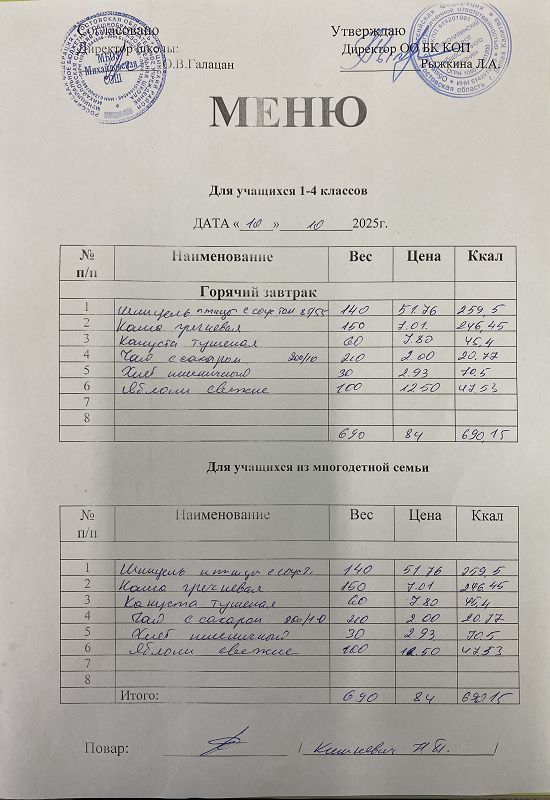 Согласовано Утверждаю
Директор школы: Директор ОО БК КОП
О.В.Галацан Рыжкина Л.А.
МБОУ
Михайловская
СОШ
МЕНЮ
Для учащихся 1-4 классов
ДАТА « 10 » 10 2025г.
№ п/п Наименование Вес Цена Ккал
Горячий завтрак
1 Шницель птицы с соусом 140 51.76 259,5
2 Каша гречневая 150 7.01. 246,45
3 Капуста тушеная 60 7.80 45,4
4 Чай с сахаром 200/10 210 2.00 20.77
5 Хлеб пшеничный 30 2.93 70.5
6 Яблоки свежие 100 12.50 47,53
7
8
690 84 690,15
Для учащихся из многодетной семьи
№ п/п Наименование Вес Цена Ккал
1 Шницель птицы с соус. 140 51.76 259.5
2 Каша гречневая 150 7.01 246.45
3 Капуста тушеная 60 7.80 45,4
4 Чай с сахаром 200/10 210 2.00 20.77
5 Хлеб пшеничный 30 2.93 70.5
6 Яблоки свежие 100 12.50 47.53
7
8
Итого: 690 84 690.15
Повар: / /